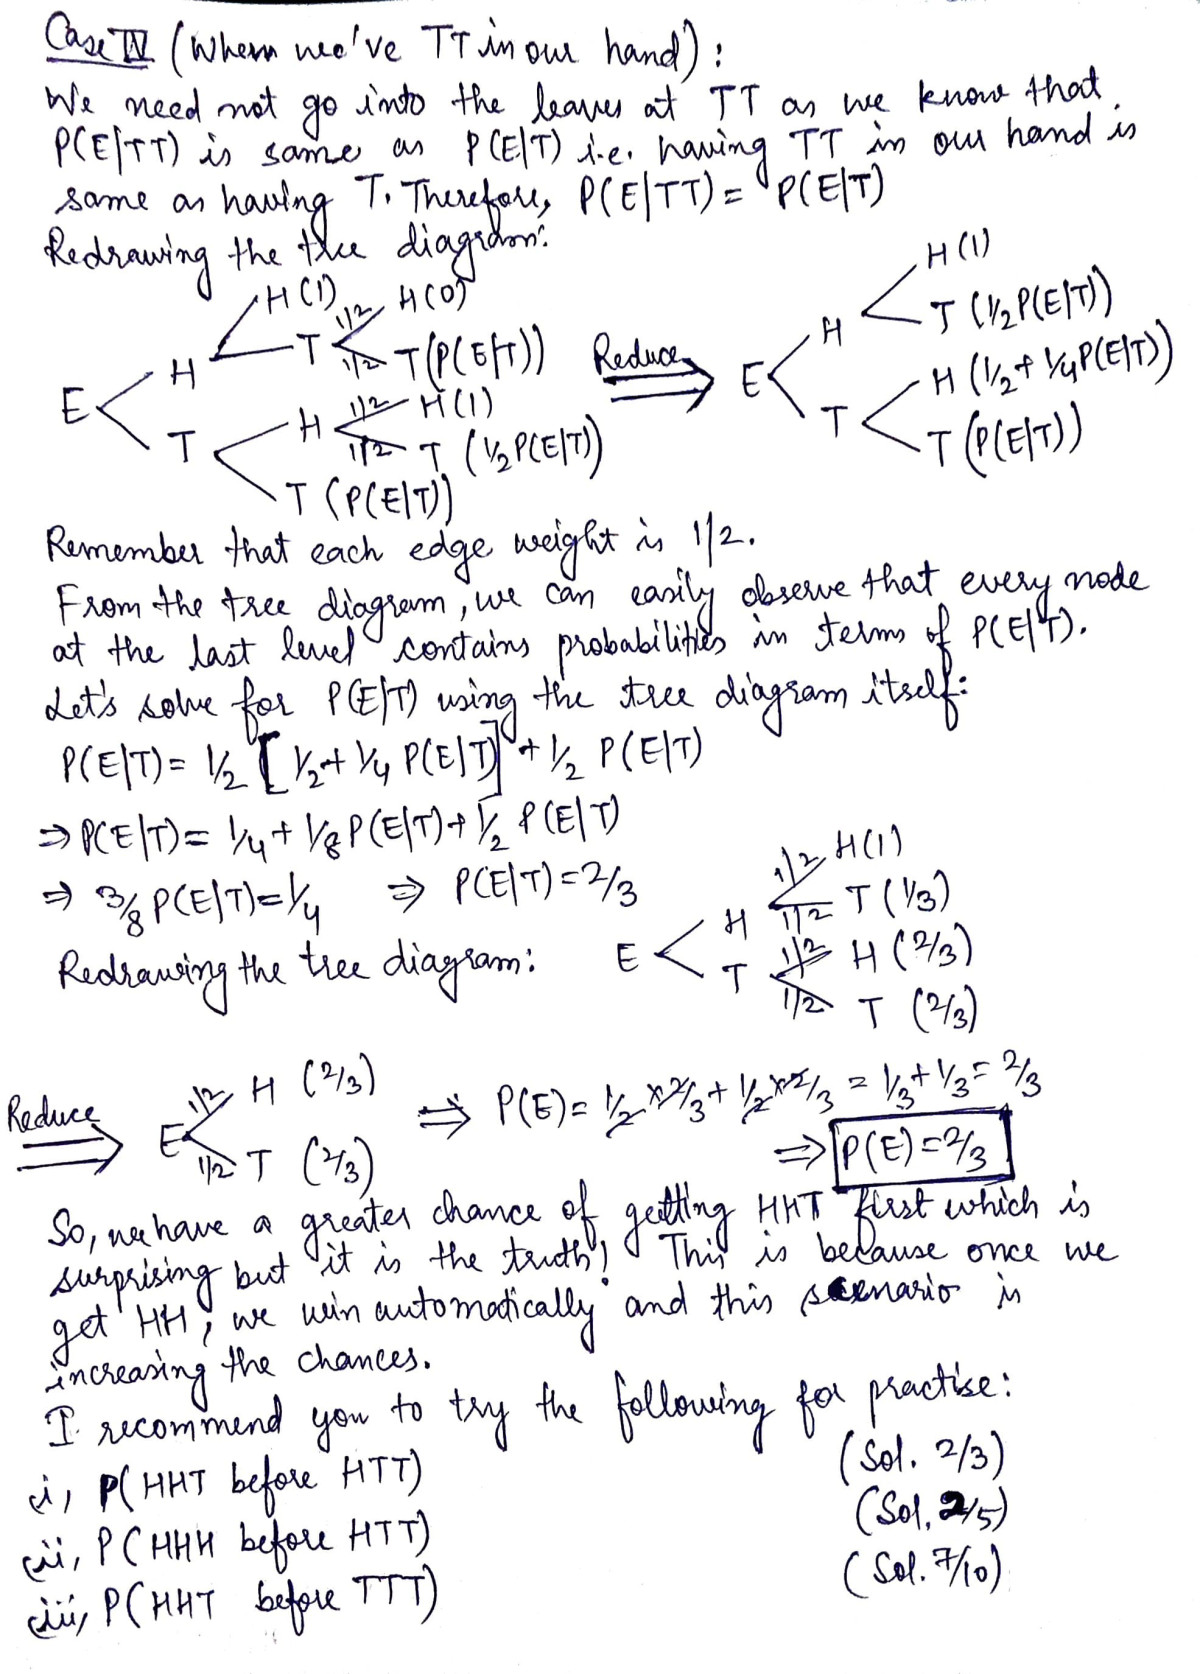 Case IV (When we've TT in our hand) :
We need not go into the leaves at TT as we know that
P(E|TT) is same as P(E|T) i.e. having TT in our hand is
same as having T. Therefore, P(E|TT) = P(E|T)
Redrawing the tree diagram:
H (1)
H (1) 1/2 H (0)
T (1/2 P(E|T))
H T 1/2 T (P(E|T)) Reduce H
E E H (1/2 + 1/4 P(E|T))
T H 1/2 H (1) T
1/2 T (1/2 P(E|T)) T (P(E|T))
T (P(E|T))
Remember that each edge weight is 1/2.
From the tree diagram, we can easily observe that every node
at the last level contains probabilities in terms of P(E|T).
Let's solve for P(E|T) using the tree diagram itself:
P(E|T) = 1/2 [1/2 + 1/4 P(E|T)] + 1/2 P(E|T)
⇒ P(E|T) = 1/4 + 1/8 P(E|T) + 1/2 P(E|T)
⇒ 3/8 P(E|T) = 1/4 ⇒ P(E|T) = 2/3
1/2 H (1)
H 1/2 T (1/3)
Redrawing the tree diagram: E
T 1/2 H (2/3)
1/2 T (2/3)
Reduce E 1/2 H (2/3) ⇒ P(E) = 1/2 × 2/3 + 1/2 × 2/3 = 1/3 + 1/3 = 2/3
1/2 T (2/3) ⇒ P(E) = 2/3
So, we have a greater chance of getting HHT first which is
surprising but it is the truth! This is because once we
get HH, we win automatically and this scenario is
increasing the chances.
I recommend you to try the following for practise:
i, P(HHT before HTT) (Sol. 2/3)
ii, P(HHH before HTT) (Sol. 2/5)
iii, P(HHT before TTT) (Sol. 7/10)